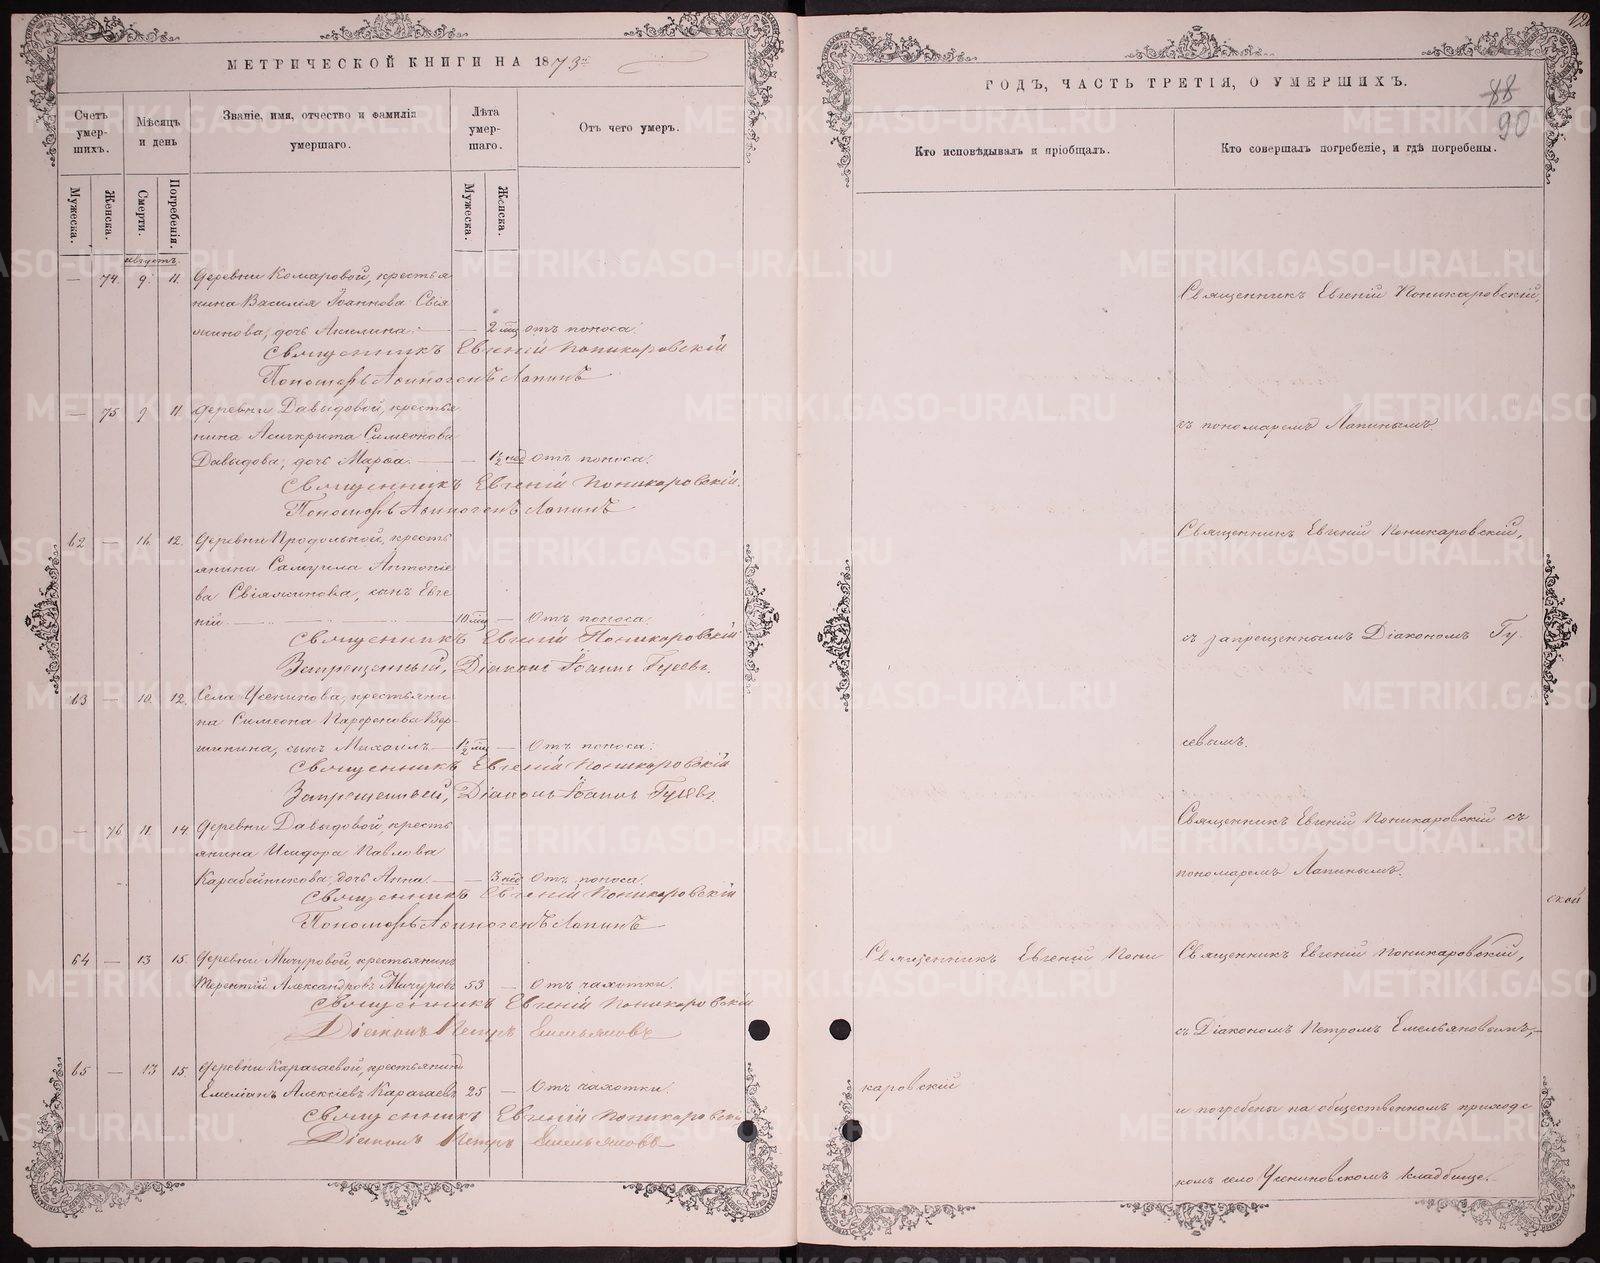 МЕТРИЧЕСКОЙ КНИГИ НА 1873й
Счетъ умер-шихъ.
Мѣсяцъ и день
Званіе, имя, отчество и фамилія умершаго.
Лѣта умер-шаго.
Отъ чего умеръ.
Мужеска.
Женска.
Смерти.
Погребенія.
Мужеска.
Женска.
Августъ.
— 74 9. 11. Деревни Комаровой, крестья
нина Василія Іоаннова Свія
жинова, дочь Акилина. — — 2 мц отъ поноса.
Священникъ Евгеній Поникаровскій
Пономарь Аѳиногенъ Лапинъ
— 75 9 11. Деревни Давыдовой, крестья
нина Асигкрита Симеонова
Давыдова, дочь Марѳа. — — 1½ нед Отъ поноса.
Священникъ Евгеній Поникаровскій.
Пономарь Аѳиногенъ Лапинъ
62 — 10. 12. Деревни Продольной, кресть
янина Самуила Антоніе
ва Свіяжинова, сынъ Евге
ній. — 10 мц — Отъ поноса.
Священникъ Евгеній Поникаровскій
Запрещенный, Діаконъ Іоаннъ Гусевъ.
63 — 10. 12. Села Усенинова, крестьяни
на Симеона Парѳенова Вер-
шинина, сынъ Михаилъ — 1½ мц — Отъ поноса.
Священникъ Евгеній Поникаровскій
Запрещенный, Діаконъ Іоаннъ Гусевъ.
— 76 11. 14. Деревни Давыдовой, кресть
янина Исидора Павлова
Карабейникова, дочь Анна. — — 3 нед Отъ поноса.
Священникъ Евгеній Поникаровскій
Пономарь Аѳиногенъ Лапинъ
64 — 13 15. Деревни Мичуровой, крестьянинъ
Терентій Александровъ Мичуровъ 53 — Отъ чахотки.
Священникъ Евгеній Поникаровскій
Діаконъ Петръ Емельяновъ
65 — 13 15. Деревни Карагаевой, крестьянинъ
Емеліанъ Алексіевъ Карагаевъ 25 — Отъ чахотки.
Священникъ Евгеній Поникаровскій
Діаконъ Петръ Емельяновъ
ГОДЪ, ЧАСТЬ ТРЕТІЯ, О УМЕРШИХЪ.
88
90
Кто исповѣдывалъ и пріобщалъ.
Кто совершалъ погребеніе, и гдѣ погребены.
Священникъ Евгеній Поникаровскій,
съ пономаремъ Лапинымъ.
Священникъ Евгеній Поникаровскій,
съ запрещеннымъ Діакономъ Гу-
севымъ.
Священникъ Евгеній Поникаровскій съ
пономаремъ Лапинымъ.
ской
Священникъ Евгеній Пони
Священникъ Евгеній Поникаровскій,
съ Діакономъ Петромъ Емельяновымъ,—
каровскій
и погребены на общественномъ приходс
комъ село Усениновскомъ кладбище.
METRIKI.GASO-URAL.RU